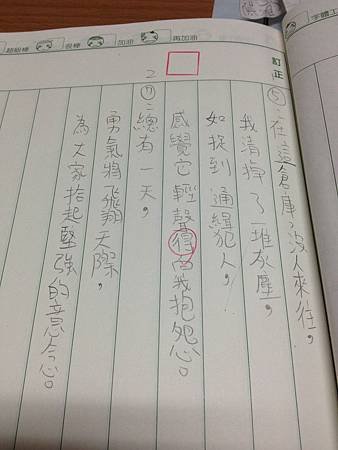 超級棒 很棒 加油 再加油
字體工
訂正
⑤:在這倉庫,沒人來往,
我清掃了一堆灰塵,
如捉到通緝犯人,!
感覺它輕聲得向我抱怨心。
2
⑦:總有一天,
勇氣將飛翔天際,
為大家拾起堅強的意念心。